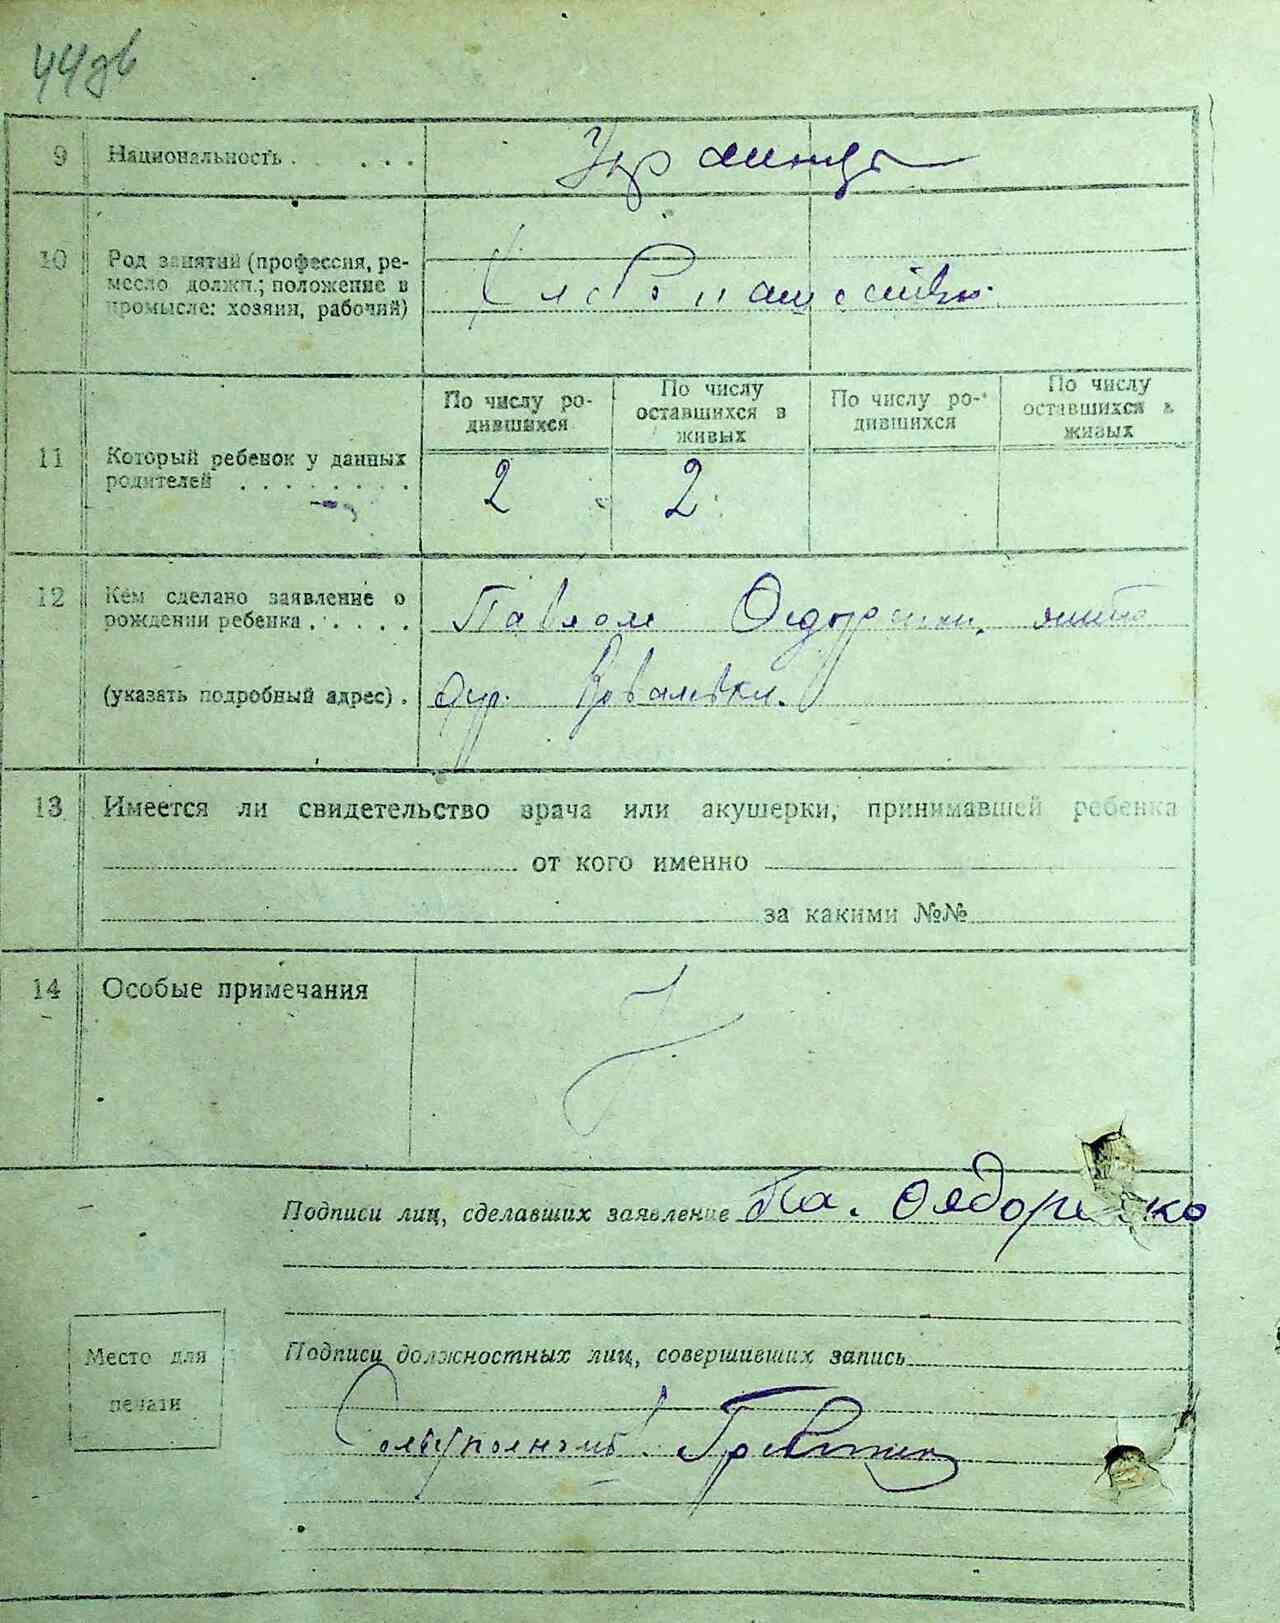 44
9 Национальность . . . . . Украинцы
10 Род занятий (профессия, ре-
месло, должн.; положение в
промысле: хозяин, рабочий)
Хлебопашество
11 Который ребенок у данных
родителей . . . . . . . .
По числу ро-
дившихся
По числу
оставшихся в
живых
По числу ро-
дившихся
По числу
оставшихся в
живых
2 2
12 Кем сделано заявление о
рождении ребенка . . . . .
Павлом
(указать подробный адрес) .
Ковалевки.
13 Имеется ли свидетельство врача или акушерки, принимавшей ребенка
от кого именно
за какими №№
14 Особые примечания
Подписи лиц, сделавших заявление Па. Федоренко
Подписи должностных лиц, совершивших запись
Место для
печати